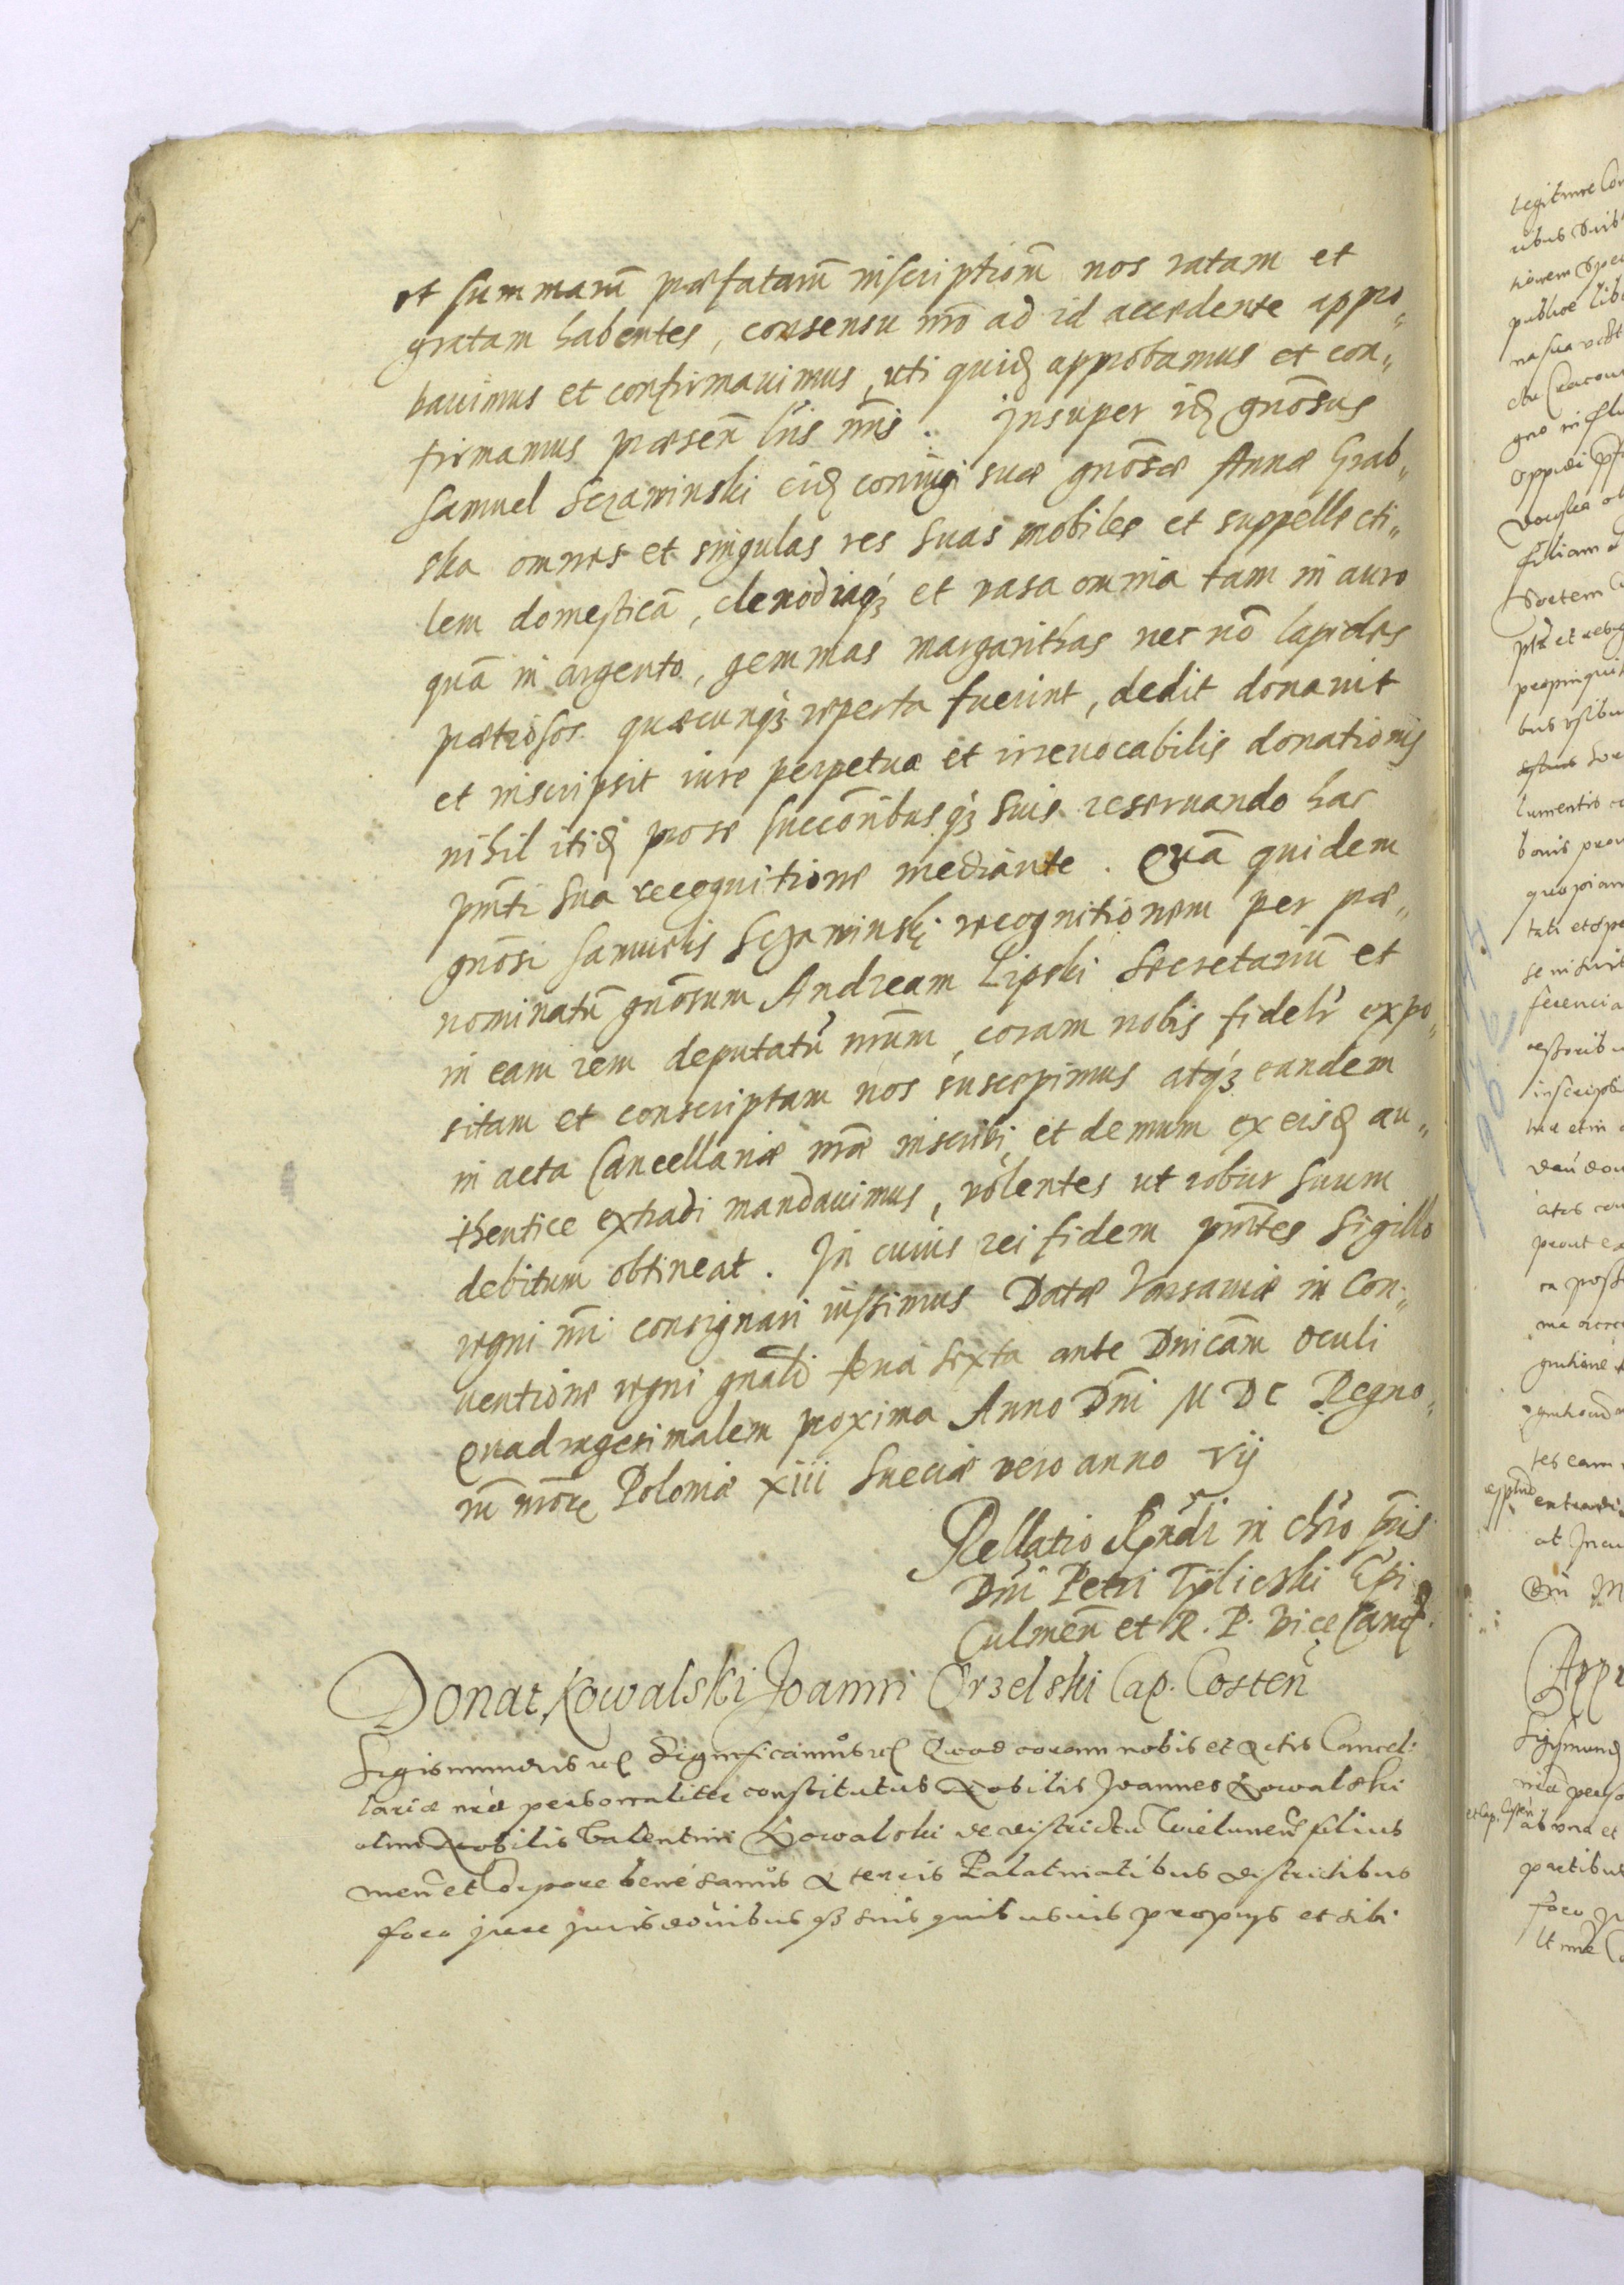 et summarũ præfatarũ inscriptionẽ nos ratam et
gratam habentes, consensu nr̃o ad id accedente appro„
bauimus et confirmauimus, uti quidẽ approbamus et con„
firmamus præsen̄ lr̃is nr̃is. Insuper idẽ gnõsus
Samuel Sczawinski eidẽ coniugi suæ gnõsæ Annæ Grab„
ska omnes et singulas res suas mobiles et suppellecti„
lem domesticã, clenodiaqꝫ et vasa omnia tam in auro
quã in argento, gemmas margarithas nec nõ lapides
prætiosos quæcunqꝫ reperta fuerint, dedit donauit
et inscripsit iure perpetuæ et irreuocabilis donationis
nihil itidẽ pro se succõribusqꝫ suis reseruando hac
pñti sua recognitione mediante. Quã quidem
gnõsi Samuelis Sczawinski recognitionem per præ„
nominatũ gnõsum Andream Lipski Secretariũ et
in eam rem deputatũ nr̃um, coram nobis fidelr̃ expo„
sitam et conscriptam nos suscepimus atqꝫ eandem
in acta Cancellariæ nr̃æ inscribi, et demum ex eisdẽ au„
thentice extradi mandauimus, volentes ut robur suum
debitum obtineat. In cuius rei fidem pñtes sigillo
regni nr̃i consignari iussimus Datæ Varsauiæ in Con„
uentione regni gñali feria sexta ante Dñicam Oculi
Quadragesimalem proxima Anno Dñi M D C Regno„
rũ nr̃orũ Poloniæ xiii Sueciæ vero anno vij
Rellatio Rñdi in Chr̃o pr̃is
Dñi Petri Tylicski Ep̃i
Culmen̄ et R. P. Vice Canc̃.
Donat Kowalski Joanni Orzelski Cap. Costen̄
Sigismundus etc̃ Significamus etc̃ Quod coram nobis et Actis Cancel:
lariæ nr̃æ personaliter constitutus Nobilis Joannes Kowalski
olim Nobilis Valentini Kowalski de districtu Wielunen̄ filius
men̄ et Corpore bene sanus & terris Palatinatibus districtibus
foro jure jurisdoñibusqꝫ suis quibusuis proprijs et sibi